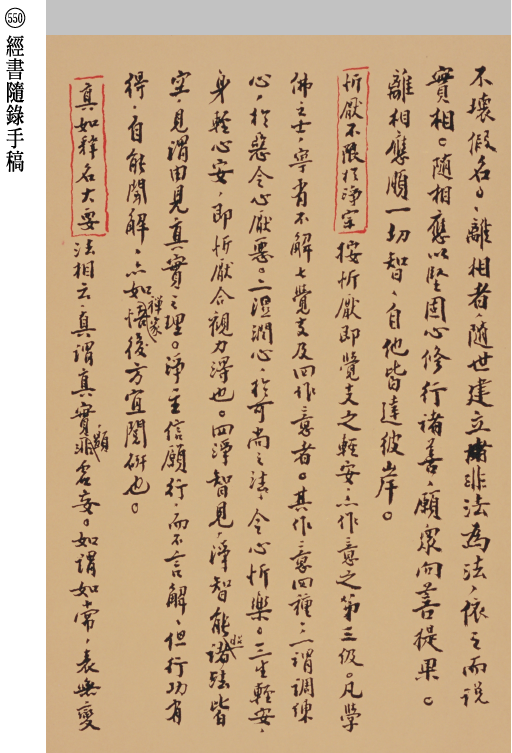 550
經書隨錄手稿
不壞假名。離相者,隨世建立非法為法,依之而說
實相。隨相應以堅固心修行諸善,願眾向菩提果。
離相應順一切智,自他皆達彼岸。
忻厭不限於淨宗 按忻厭即覺支之輕安,亦作意之第三級。凡學
佛之士,寧有不解七覺支及四作意者。其作意四種:一謂調倈
心,於惡令心厭惡。二滋潤心,於可尚之法,令心忻樂。三生輕安,
身輕心安,即忻厭合視力得也。四淨智見,淨智能照諸法皆
空,見謂由見真實之理。淨主信願行,而不言解,但行功有
得,自能開解,亦如禪家悟後方宜閱研也。
真如釋名大要 法相云:真謂真實,顯非虛妄。如謂如常,表無變